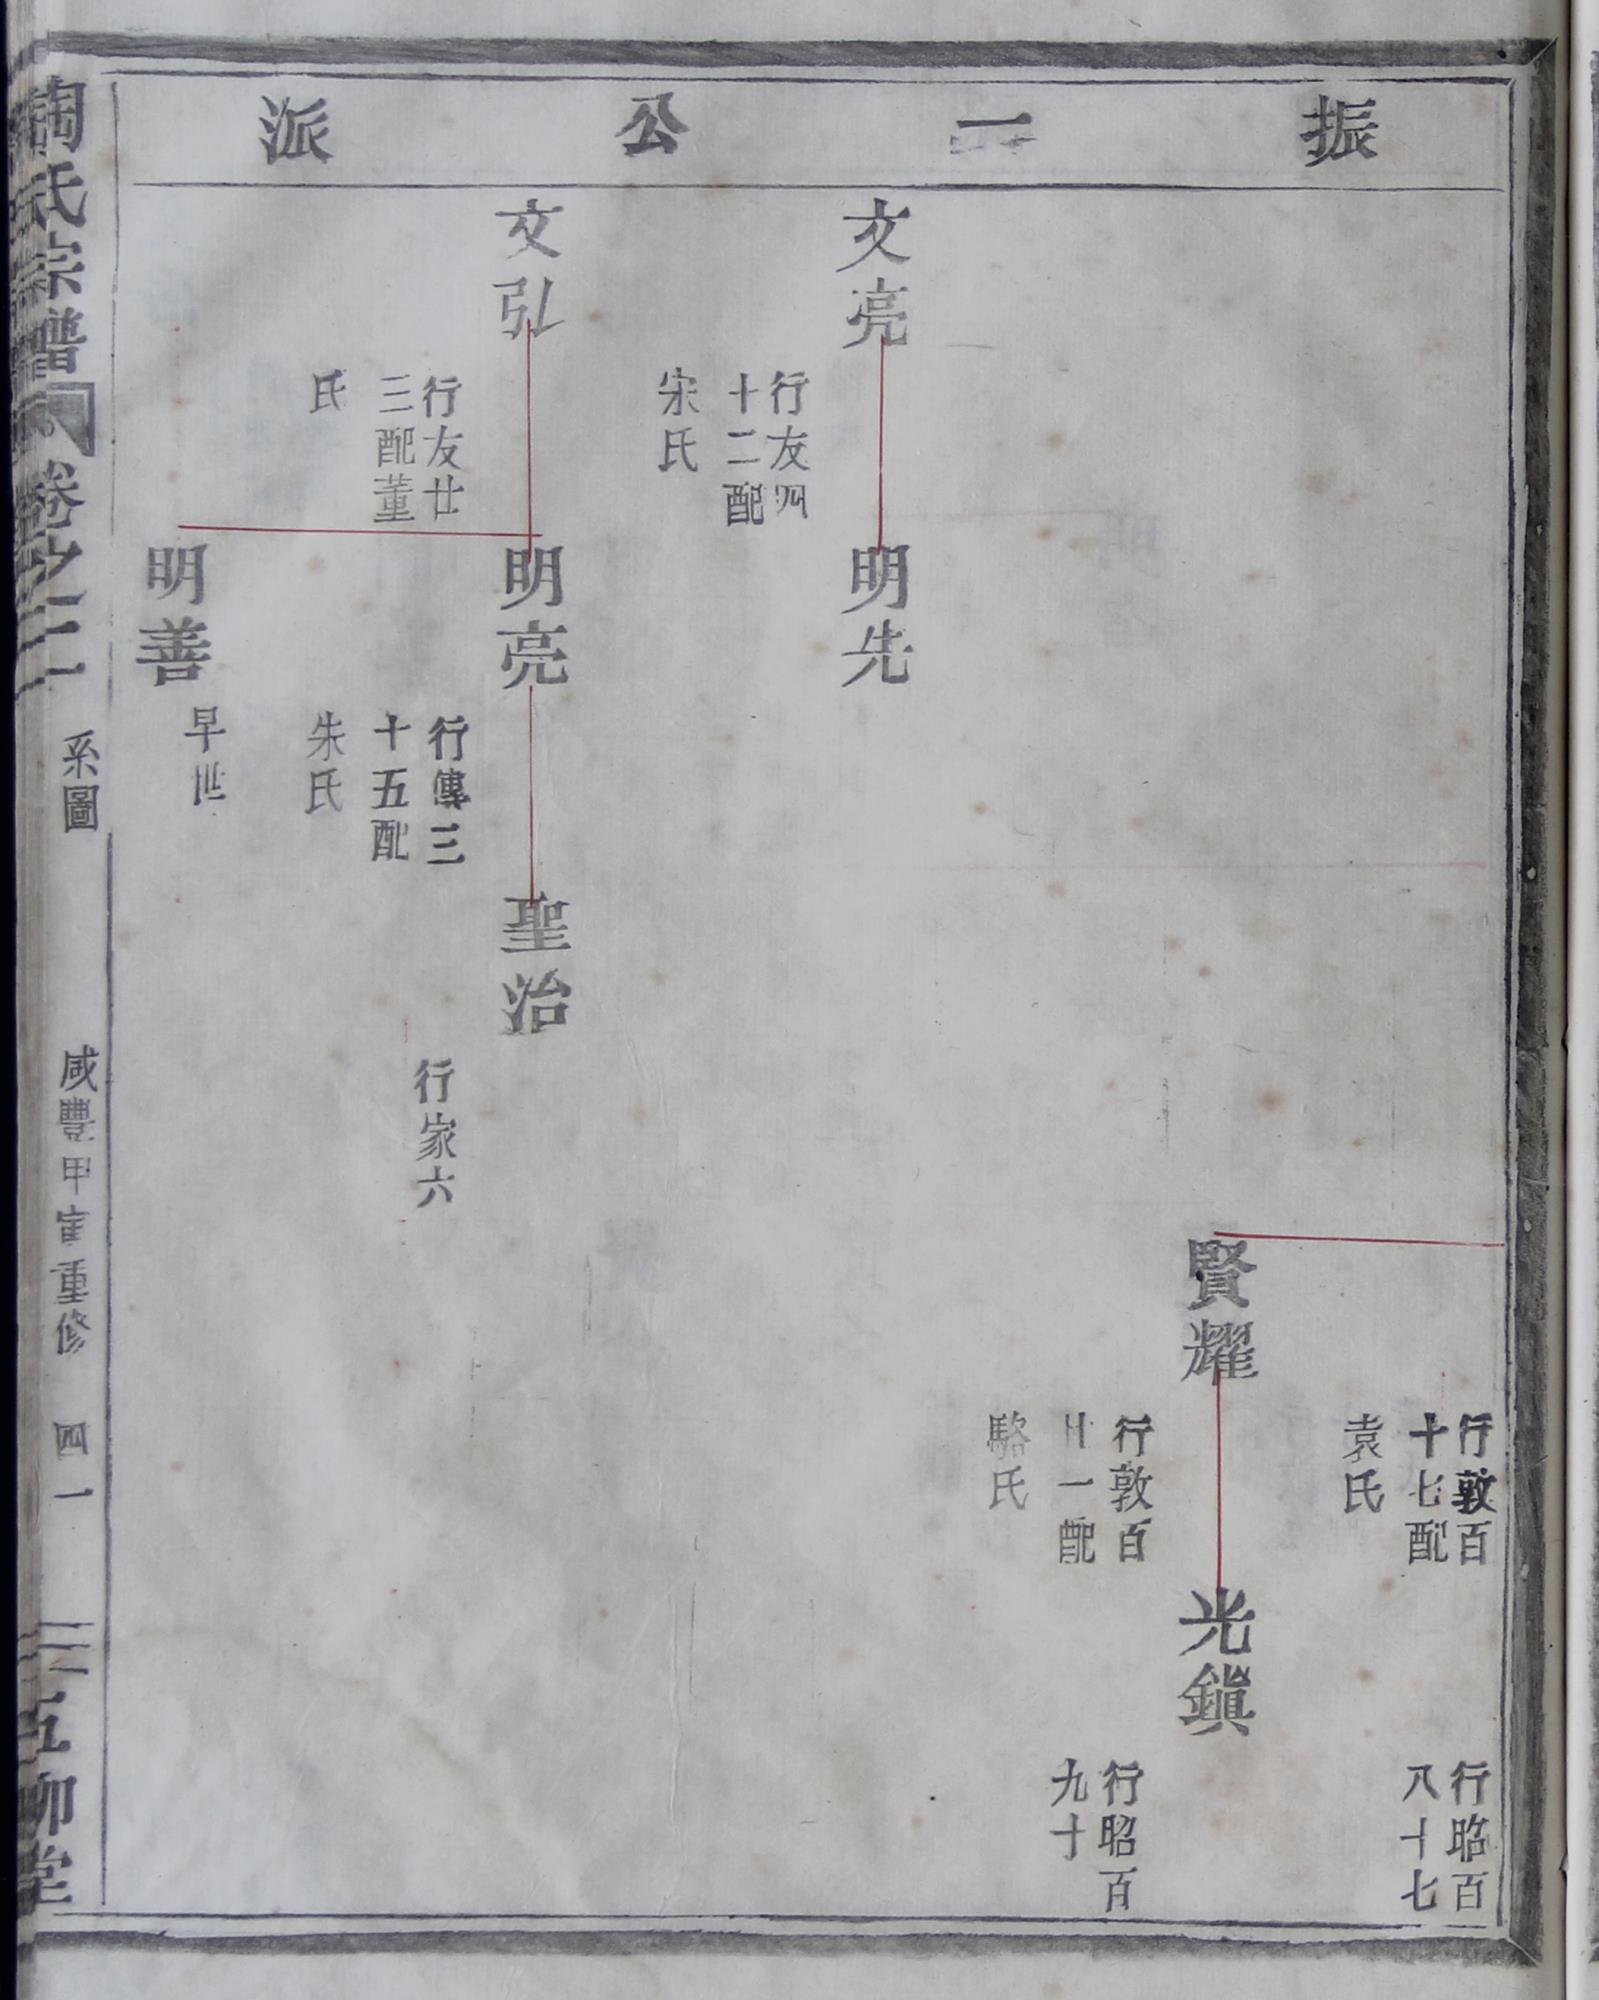 振一公派
行敦百
十七配
袁氏
行昭百
八十七
賢耀
行敦百
廿一配
駱氏
光鎮
行昭百
九十
文亮
行友四
十二配
宋氏
明先
文弘
行友廿
三配董
氏
明亮
行傳三
十五配
朱氏
聖治
行家六
明善
早世
陶氏宗譜
卷之二
系圖
咸豐甲寅重修
四一
五柳堂